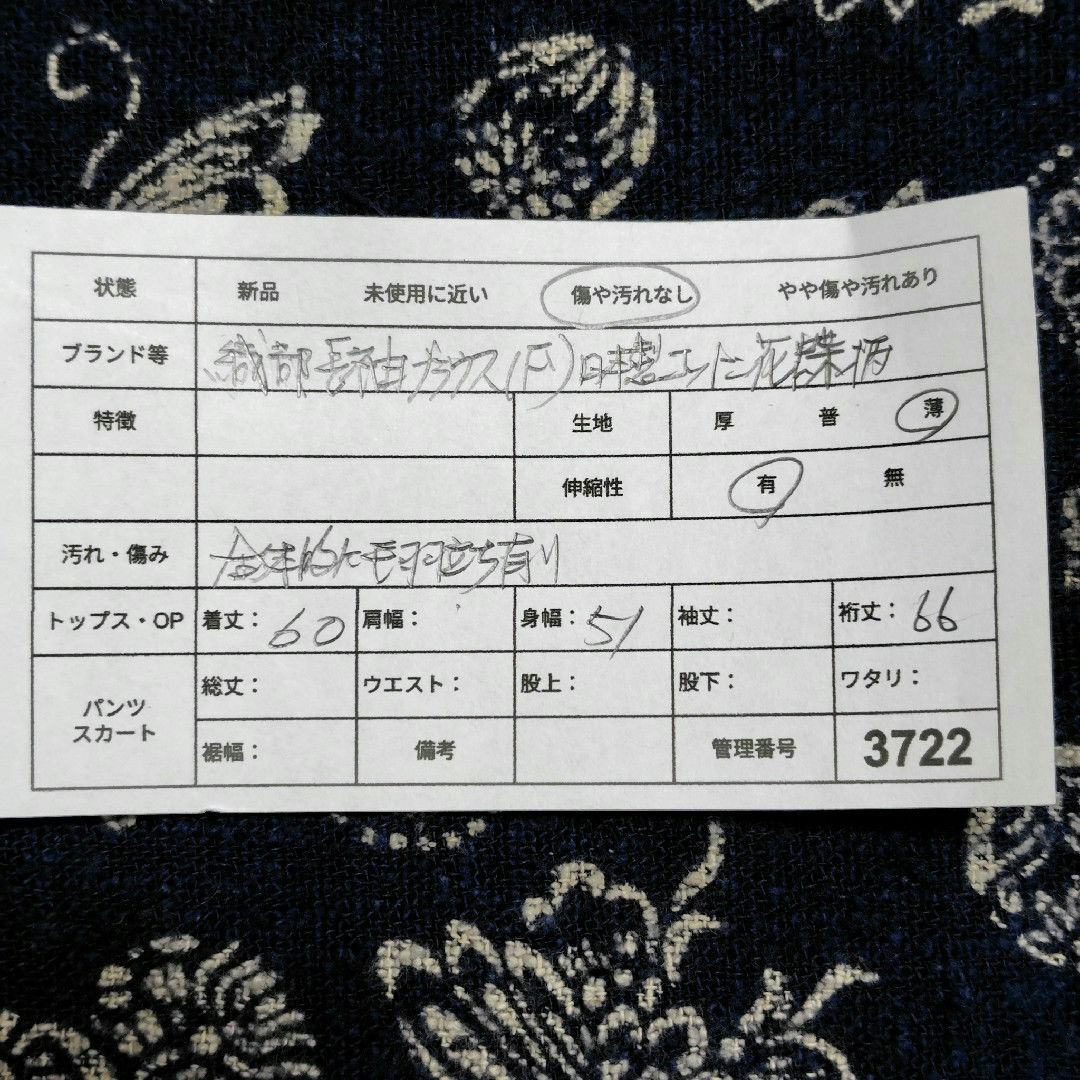 状態 新品 未使用に近い 傷や汚れなし やや傷や汚れあり
ブランド等 織部長袖ブラウス(F)日本製コットン花蝶柄
特徴 生地 厚 普 薄
伸縮性 有 無
汚れ・傷み 全体的に毛羽立ち有り
トップス・OP 着丈: 60 肩幅: 身幅: 51 袖丈: 裄丈: 66
パンツ スカート 総丈: ウエスト: 股上: 股下: ワタリ:
裾幅: 備考 管理番号 3722